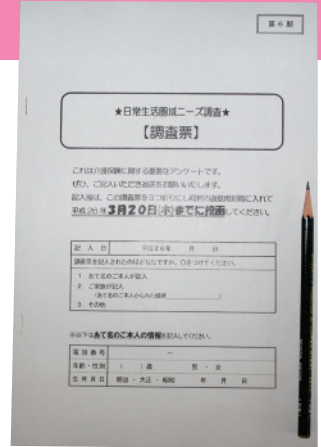 第6期
★日常生活圏域ニーズ調査★
【調査票】
これは介護保険に関する重要なアンケートです。
ぜひ、ご記入いただき返送をお願いいたします。
記入後は、この調査票を3つ折りにし同封の返信用封筒に入れて
平成26年3月20日(木)までに投函してください。
記入日 平成26年 月 日
調査票を記入されたのはどなたですか。○をつけてください。
1. あて名のご本人が記入
2. ご家族が記入
(あて名のご本人からみた続柄 )
3. その他
※以下はあて名のご本人の情報を記入してください。
電話番号 ー
年齢・性別 ( )歳 男 ・ 女
生年月日 明治 ・ 大正 ・ 昭和 年 月 日